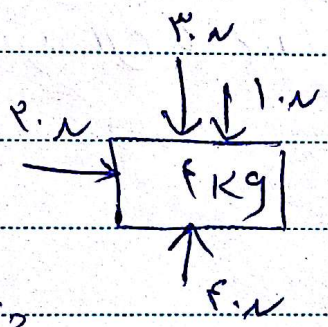 ۳۰N
۱۰N
۲۰N
۴kg
۴۰N